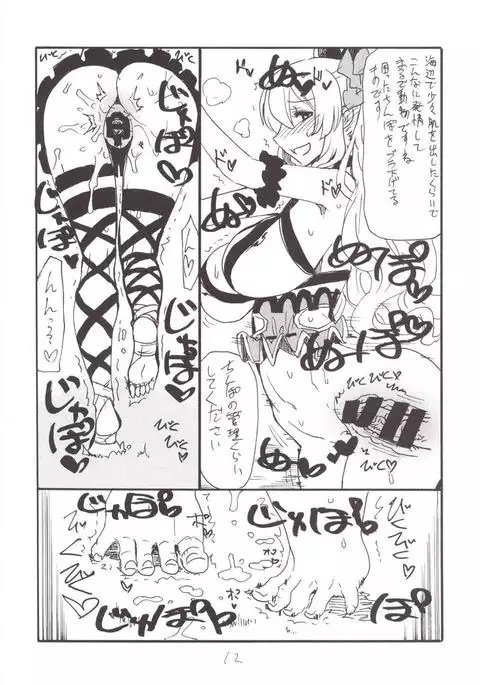 海辺で少々肌を出したくらいで
こんなに発情して
まるで動物ですね
困ったちんぽをブラ下げてる
ものです
ぬっ
ドキ
ぬっ
めぽっ
めっぽ
ぬぽ
ちんぽの管理くらい
してください
びく
びく
めっ
じゅぽっ
じゅぽ
じゅぽ
じゅぽ
んっ
んんっ
びくびく
じゅぽっ
じゅぽっ
びくびく
ポ
ポ
じゅぽっ
ぽ
びくびく
12